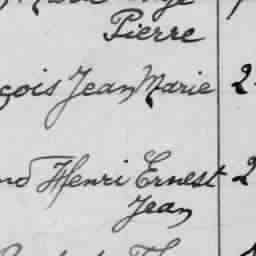 Pierre
çois Jean Marie 2
nd Henri Ernest 2
Jean